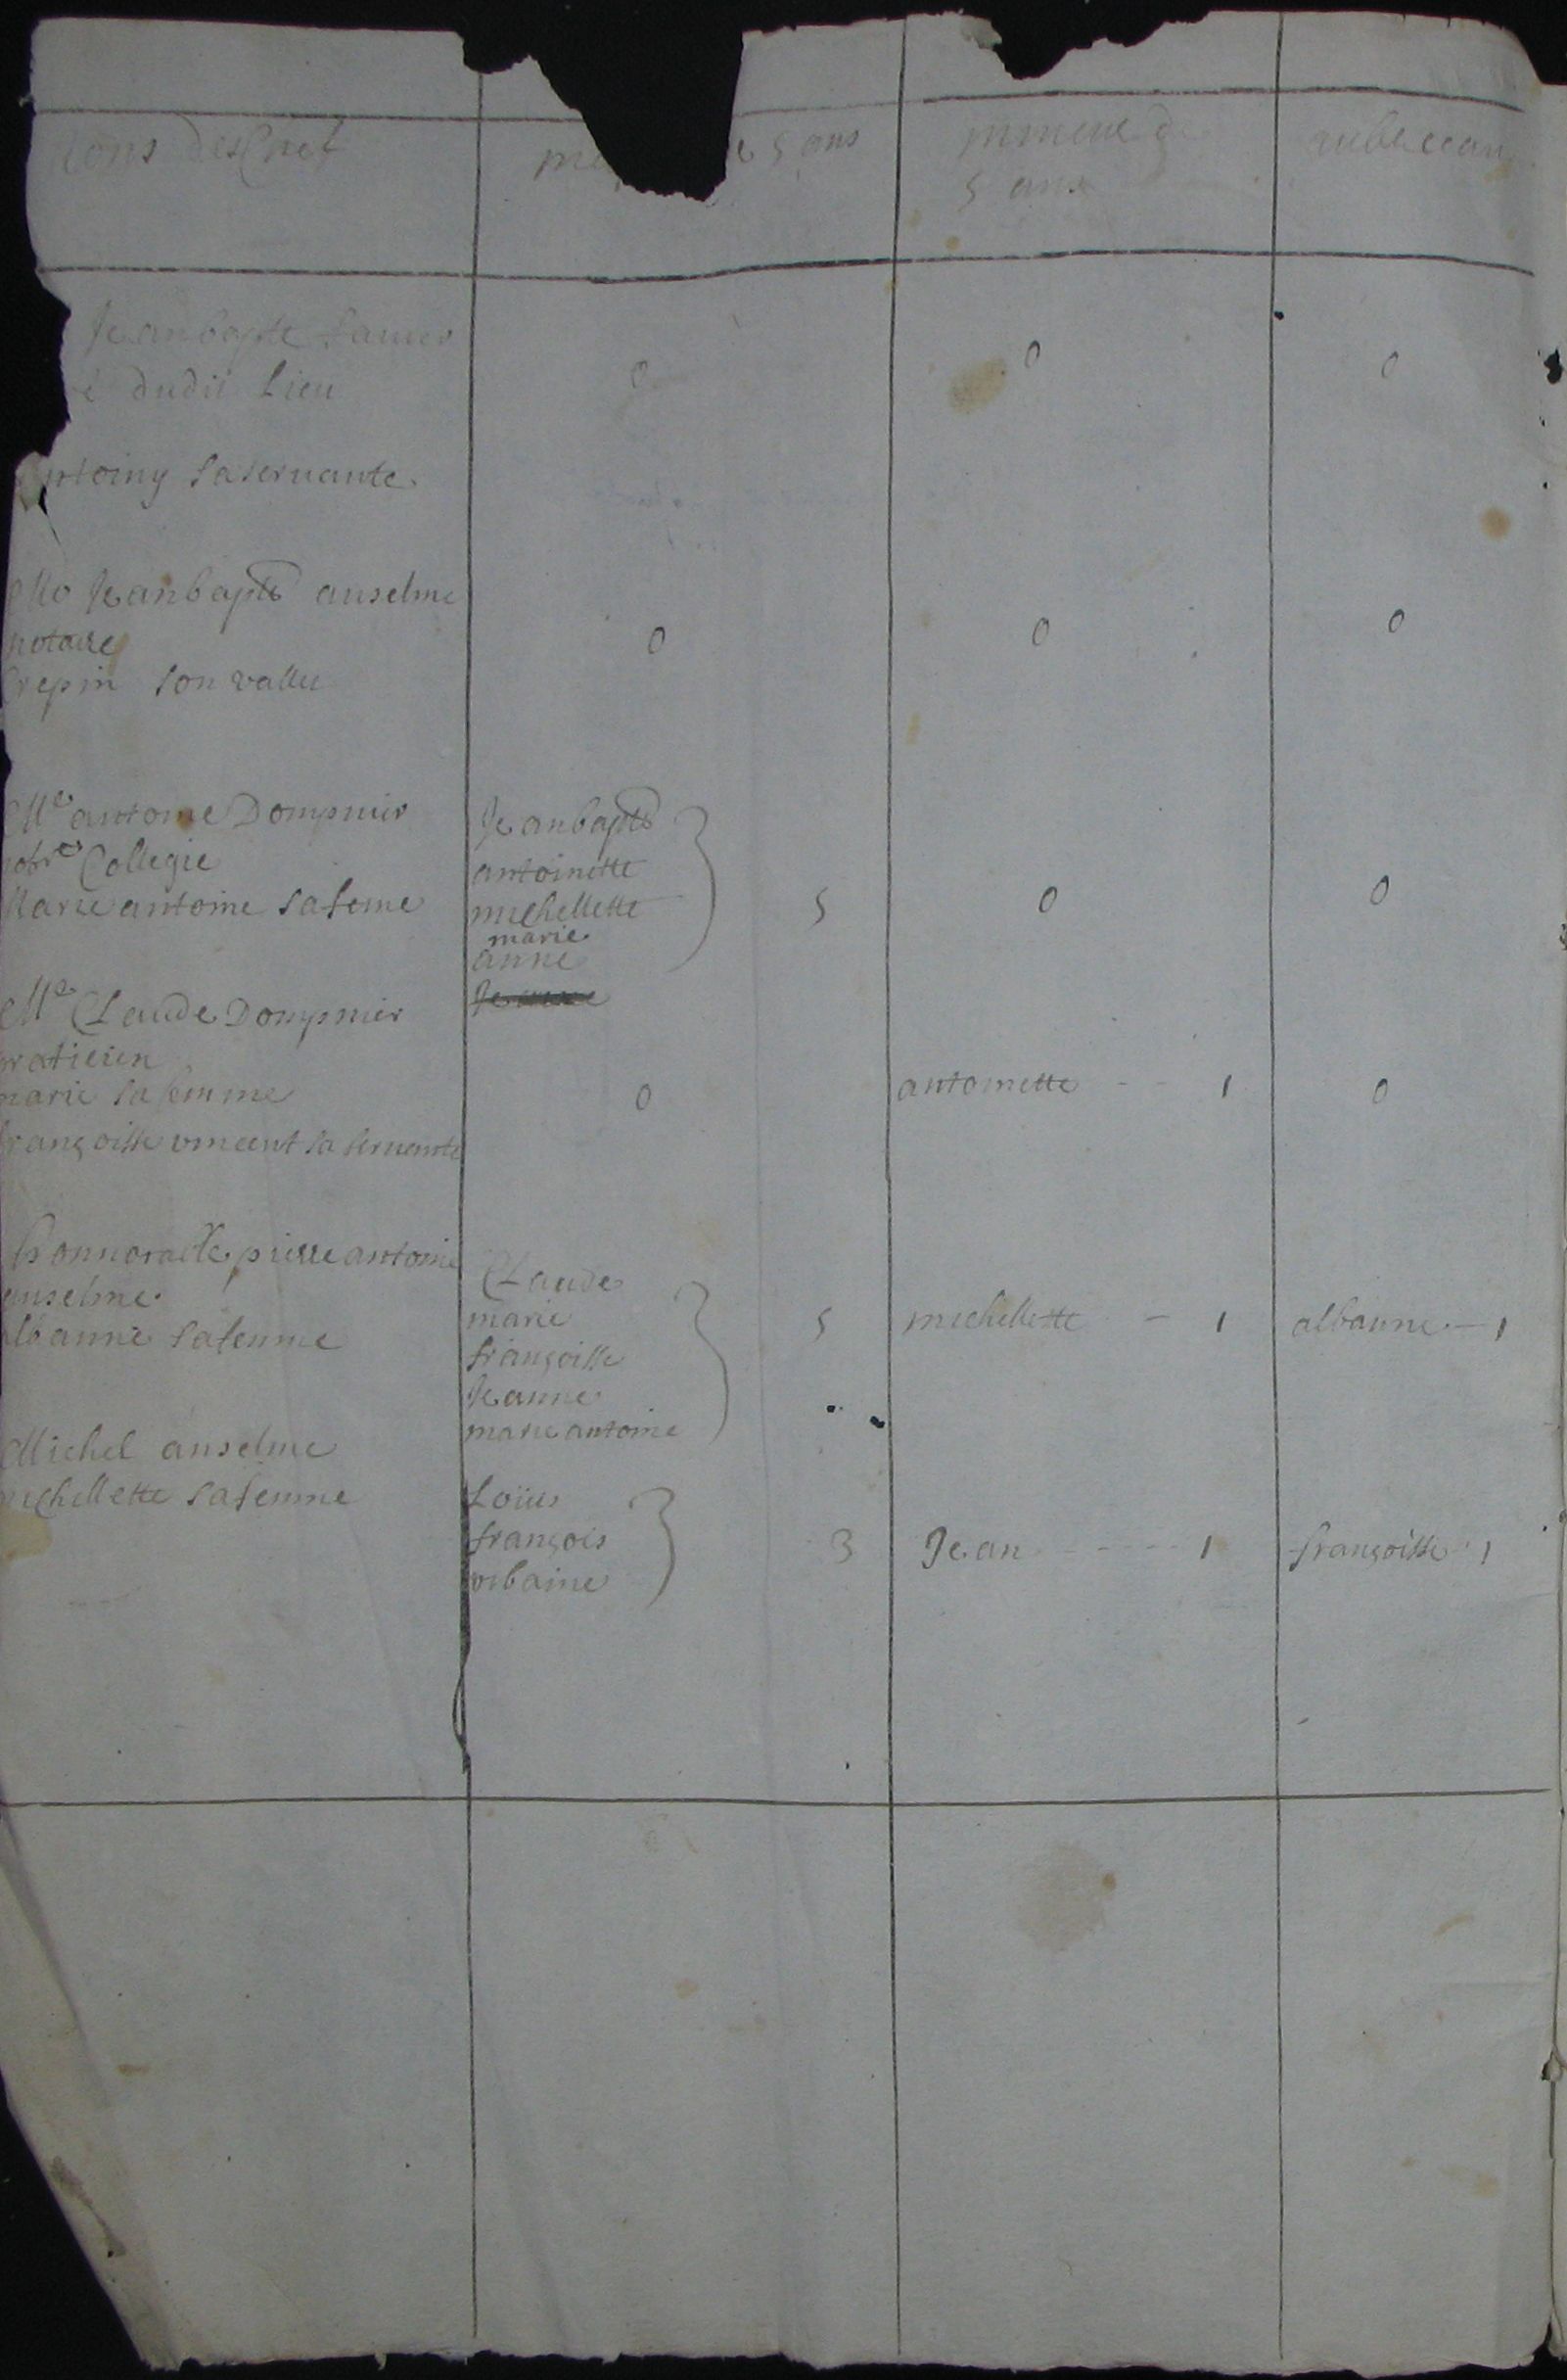 5 ans
5 ans
Jeanbapte
dudit Lieu
0
0
0
saservante
Jeanbapte anselme
notaire
0
0
0
crepin son vallet
Me antoine Dompnier
Collegie
Marie antoine safeme
Jeanbapte
antoinette
michellette
marie
anne
5
0
0
Me Claude Dompnier
praticien
marie sa femme
françoisse vincent sa servante
0
antoinette - - 1
0
honnorable pierre antoine
anselme
albanne safemme
Claude
marie
françoisse
Jeanne
marie antoine
5
michellette - 1
albanne - 1
Michel anselme
michellette safemme
Loüis
françois
urbaine
3
Jean - - - - - 1
françoisse 1